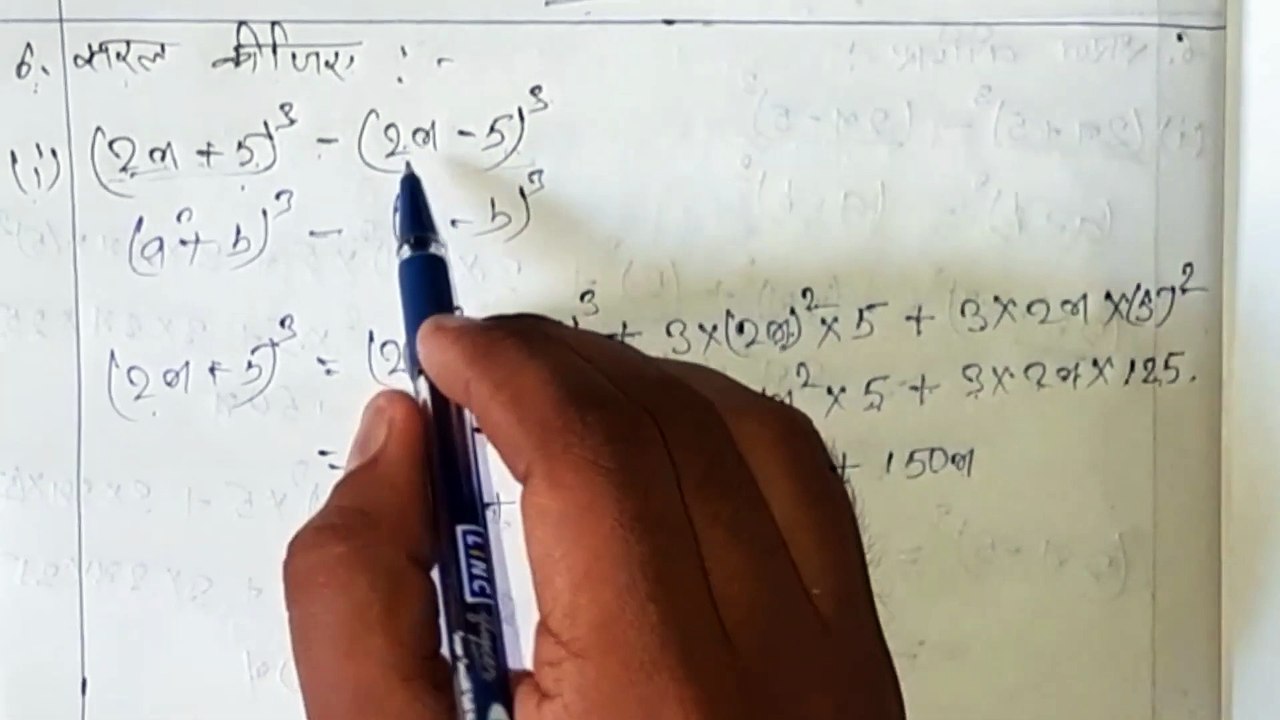 6. सरल कीजिए :-
(i) (2x + 5)³ - (2x - 5)³
(a + b)³ - - b)³
(2x + 5)³ = (2 ³ + 3×(2x)²×5 + 3×2x×(5)²
² × 5 + 3×2x×125.
= + 150x
+
LINC